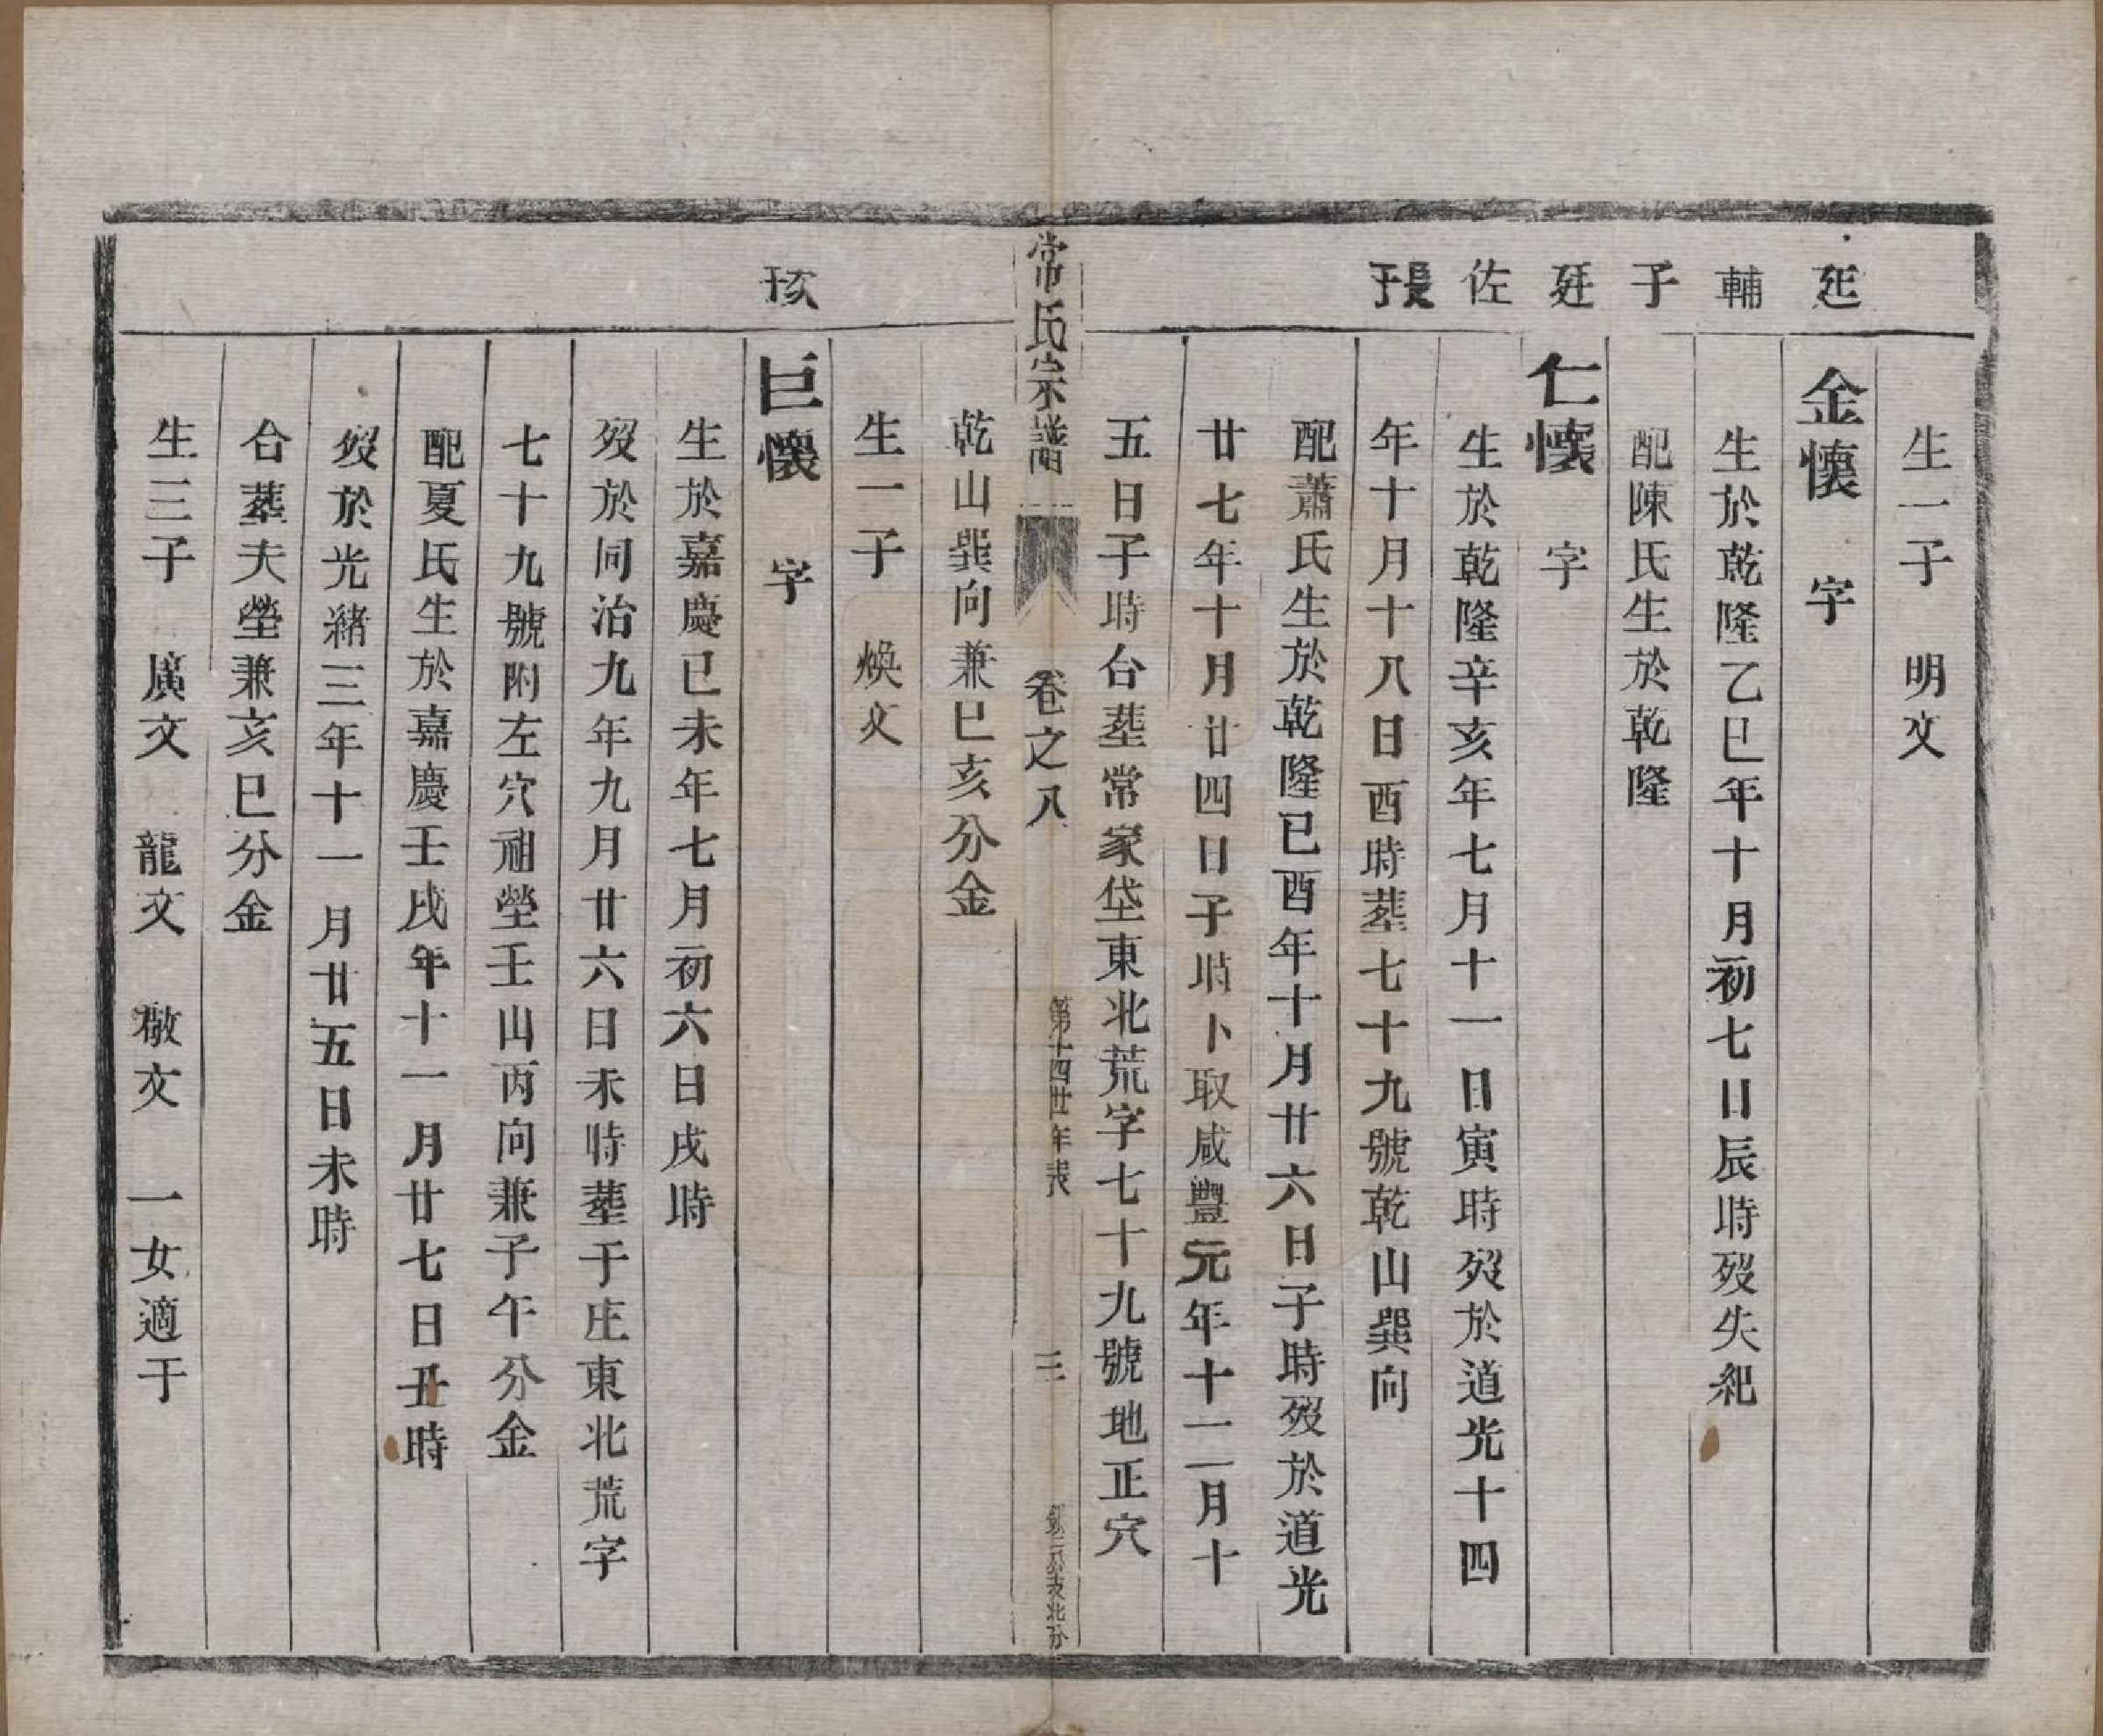 生一子 明文
廷
金懷 字
輔
生於乾隆乙巳年十月初七日辰時歿失紀
子
配陳氏生於乾隆
廷
仁懷 字
佐
生於乾隆辛亥年七月十一日寅時歿於道光十四
長子
年十月十八日酉時塟七十九號乾山巽向
配蕭氏生於乾隆已酉年十月廿六日子時歿於道光
廿七年十月廿四日子時卜取咸豐元年十二月十
五日子時合塟常家垈東北荒字七十九號地正穴
常氏宗譜 卷之八 第十四世年表 三
乾山巽向兼巳亥分金
生一子 煥文
次子
巨懷 字
生於嘉慶已未年七月初六日戌時
歿於同治九年九月廿六日未時塟于庄東北荒字
七十九號附左穴祖塋壬山丙向兼子午分金
配夏氏生於嘉慶壬戌年十一月廿七日丑時
歿於光緒三年十一月廿五日未時
合塟夫塋兼亥巳分金
生三子 廣文 龍文 敬文 一女適于